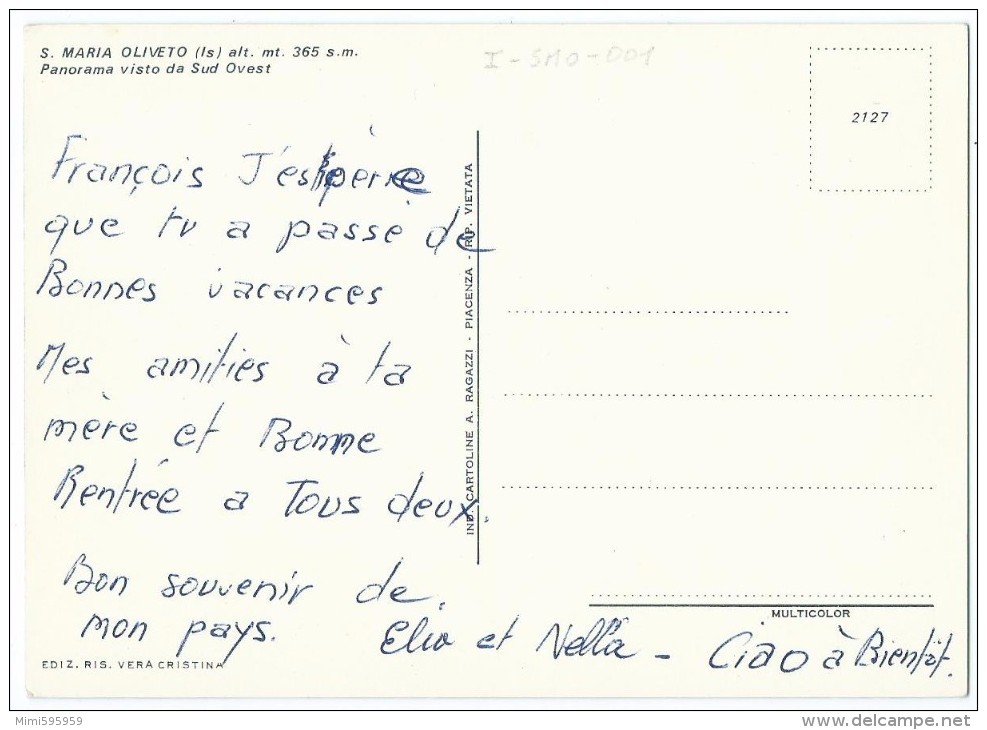 S. MARIA OLIVETO (Is) alt. mt. 365 s.m.
Panorama visto da Sud Ovest
I-SMO-001
2127
François J'espère
que tu a passé de
Bonnes vacances
Mes amities à ta
mère et Bonne
Rentrée a Tous deux.
Bon souvenir de
mon pays.
Elio et Nella - Ciao à Bientôt.
IND. CARTOLINE A. RAGAZZI - PIACENZA - RIP. VIETATA
MULTICOLOR
EDIZ. RIS. VERA CRISTINA
Mimi595959
delcampe.net